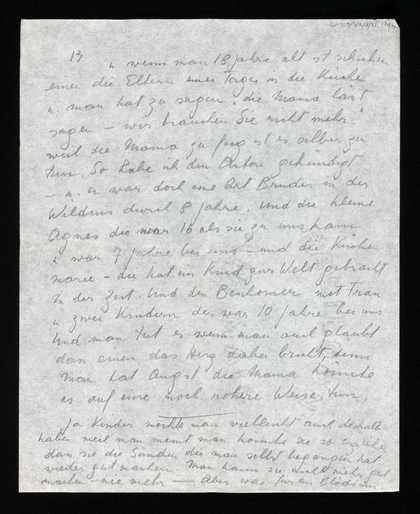 13 " wenn man 18 Jahre alt ist schicken
einen die Eltern eines Tages in die Küche
u. man hat zu sagen "die Mama lässt
sagen – wir brauchen Sie nicht mehr"
weil die Mama zu feig ist es selber zu
tun. So habe ich den Anton gekündigt
– u. er war doch eine Art Bruder in der
Wildnis durch 8 Jahre. Und die kleine
Agnes die war 16 als sie zu uns kam
u. war 7 Jahre bei uns – und die Küchen
marie – die hat ein Kind zur Welt gebracht
in der Zeit. Und den mit Frau
u. zwei Kindern der war 10 Jahre bei uns
Und man tut es wenn man auch glaubt
dass einem das Herz dabei bricht, denn
man hat Angst die Mama könnte
es auf eine noch rohere Weise tun.
Ja Kinder möchte man vielleicht auch deshalb
haben weil man meint man könnte sie so
dass sie die Sünden die man selbst begangen hat
wieder gut machen. Man kann sie nicht mehr gut
machen – nie mehr — Aber was für ein Blödsinn